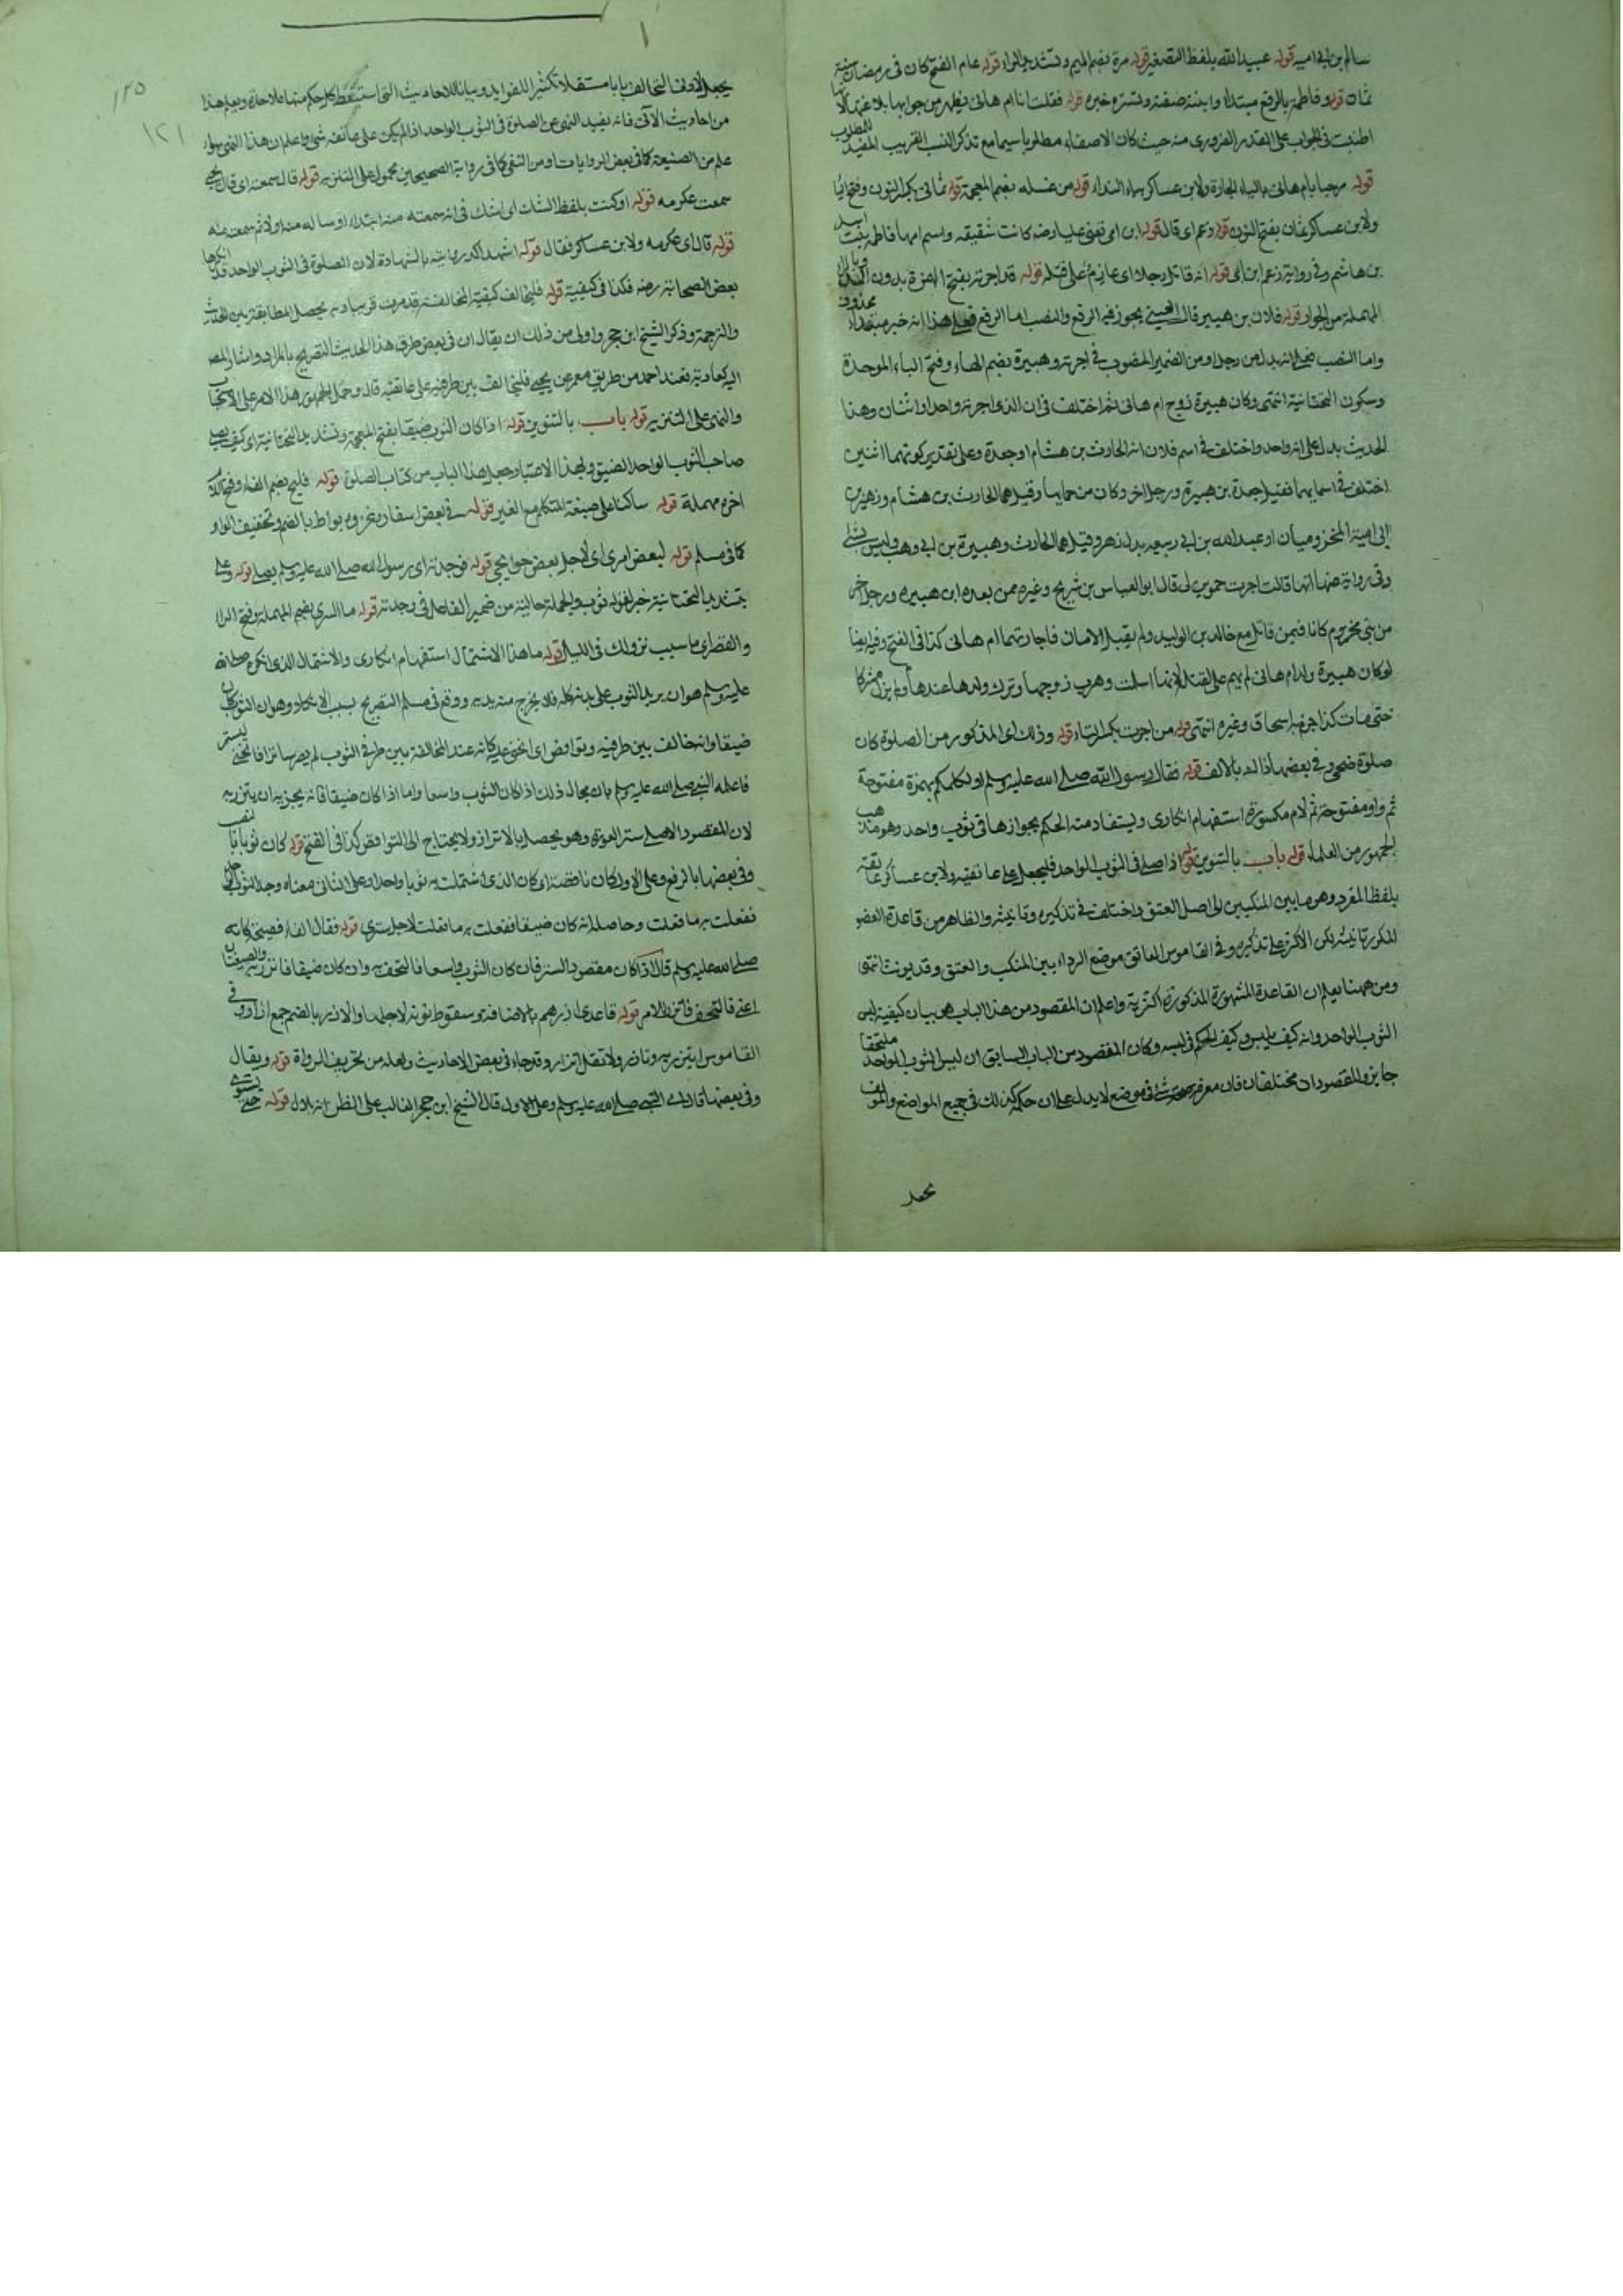 سالم بن ابي امية قوله عبيد الله بلفظ التصغير قوله مرة بضم الميم وتشديد الراء قوله عام الفتح كان في رمضان سنة
ثمان قوله وفاطمة بالرفع مبتدأ وابنته صفته وتستره خبره قوله فقلت انا ام هانئ يظهر من جوابها بلا
اطنبت في الجواب على القدر الضروري منه حيث كان الاصغاء مطلوبا سيما مع تذكر النسب القريب المفيد للمطلوب
قوله مرحبا بام هانئ بالياء الجارة ولابن عساكر بياء النداء قوله من غسله بضم المعجمة قوله ثماني بكسر النون وفتح الياء
ولابن عساكر ثمان بفتح النون قوله زعم اى قال قوله ابن امي تعني عليا رضه كانت شقيقه واسم امها فاطمة بنت اسد
بن هاشم وفي رواية زعم ابن ابي قوله انه قاتل رجلا اى عازم على قتله قوله قد اجرته بفتح الهمزة بدون المد وبالراء
المهملة من الجوار قوله فلان بن هبيرة قال العيني يجوز فيه الرفع والنصب اما الرفع فعلى هذا انه خبر مبتدأ محذوف
واما النصب فعلى انه بدل من رجلا او من الضمير المنصوب في اجرته وهبيرة بضم الهاء وفتح الباء الموحدة
وسكون التحتانية انتهى وكان هبيرة زوج ام هانئ ثم اختلف في ان الذي اجرته واحد او اثنان وهذا
الحديث يدل على انه واحد واختلف في اسم فلان انه الحارث بن هشام او جعدة وعلى تقدير كونهما اثنين
اختلف في اسمايهما فقيل جعدة بن هبيرة ورجل اخر وكان من حمايها وقيل هما الحارث بن هشام وزهير بن
ابي امية المخزوميان او عبد الله بن ابي ربيعه بدل زهير وقيل هما الحارث وهبيرة بن ابي وهب وليس بشئ
وفي رواية عنها انها قالت اجرت حموين لي قال ابو العباس بن شريح وغيره ممن بعده ابن هبيره ورجل اخر
من بني مخزوم كانا فيمن قاتل مع خالد بن الوليد ولم يقبلا الامان فاجارتهما ام هانئ كذا في الفتح وفيه ايضا
لو كان هبيرة ولد ام هانئ لم يهم على القتل لانها اسلمت وهرب زوجها وترك ولدها عندها ولم يزل مشركا
حتى مات كذا جزم ابن اسحاق وغيره انتهى قوله من اجرت بكسر التاء قوله وذلك اى المذكور من الصلوة كان
صلوة ضحى وفي بعضها اذا لد بالالف قوله فقال رسول الله صلى الله عليه وسلم اولكلكم بهمزة مفتوحة
ثم واو مفتوحة ثم لام مكسورة استفهام انكارى ويستفاد منه الحكم بجوازها في ثوب واحد وهو مذهب
الجمهور من العلماء قوله باب بالتنوين قوله اذا صلى في الثوب الواحد فليجعل على عاتقيه ولابن عساكر عاتقه
بلفظ المفرد وهو ما بين المنكبين الى اصل العنق واختلف في تذكيره وتانيثه والظاهر من قاعدة العضو
المكرر تانيثه لكن الاكثر على تذكيره وفي القاموس العاتق موضع الرداء بين المنكب والعنق وقد يونث انتهى
ومن ههنا يعلم ان القاعدة المشهورة المذكورة اكثرية واعلم ان المقصود من هذا الباب هو بيان كيفية لبس
الثوب الواحد وانه كيف يلبس وكيف الحكم في لبسه وكان المقصود من الباب السابق ان لبس الثوب الواحد ملتحفا
جايز والمقصودان مختلفان فان معرفة شئ في موضع لا يدل على ان حكمه كذلك في جميع المواضع والمولف
يجعل
١٢٥
١٢١
يجعل لادنى التخالف بابا مستقلا تكثيرا للفوايد وبيانا للاحاديث التي استنبط كل حكم منها علاحدة ويعلم هذا
من احاديث الآتي فانه يفيد النهي عن الصلوة في الثوب الواحد اذا لم يكن على عاتقه شئ واعلم ان هذا النهي سواء
علم من الصيغة كما في بعض الروايات او من النفي كما في رواية الصحيحين محمول على التنزيه قوله قال سمعته اى قال يحيى
سمعت عكرمه قوله او كنت بلفظ الشك اى اشك في انه سمعته منه ابتداء او سأله منه اولا ثم سمعته منه
قوله قال اى عكرمه ولابن عساكر فقال قوله اشهد اكد روايته بالشهادة لان الصلوة في الثوب الواحد قد انكرها
بعض الصحابة رضه فكذا في كيفيته قوله فليخالف كيفية المخالفة قد مرت قريبا وبه يحصل المطابقة بين الحديث
والترجمة وذكر الشيخ ابن حجر واولى من ذلك ان يقال ان في بعض طرق هذا الحديث التصريح بالمراد واشار المص
اليه كعادته فعند احمد من طريق معمر عن يحيى فليخالف بين طرفيه على عاتقيه قال وحمل الجمهور هذا الامر على الاستحباب
والنهي على التنزيه قوله باب بالتنوين قوله اذا كان الثوب ضيقا بفتح المعجمة وتشديد التحتانية اى كيف يصلي
صاحب الثوب الواحد الضيق وبهذا الاعتبار جعل هذا الباب من كتاب الصلوة قوله فليح بضم الفاء وفتح اللام
اخره مهملة قوله سالنا على صيغة المتكلم مع الغير قوله في بعض اسفاره غزوه بواط بالضم وتخفيف الواو
كما في مسلم قوله لبعض امرى اى لاجل بعض حوايجي قوله فوجدته اى رسول الله صلى الله عليه وسلم يصلي قوله وعلى
بتشديد التحتانية خبر لقوله ثوب والجملة حالية من ضمير الفاعل في وجدته قوله ما السرى بضم المهملة وفتح الراء
والقصر اى ما سبب نزولك في الليل قوله ما هذا الاشتمال استفهام انكارى والاشتمال الذي انكره صلى الله
عليه وسلم هو ان يدير الثوب على بدنه كله فلا يخرج منه يديه ووقع في مسلم التصريح بسبب الانكار وهو ان الثوب كان
ضيقا وانه خالف بين طرفيه وتواقص اى انحنى عليه كانه عند المخالفة بين طرفي الثوب لم يصر ساترا فانحنى ليستر
فاعلمه النبي صلى الله عليه وسلم بان محال ذلك اذا كان الثوب واسعا واما اذا كان ضيقا فانه يجزيه ان يتزر به
لان المقصود الاصلي ستر العورة وهو يحصل بالاتزار ولا يحتاج الى التواقص كذا في الفتح قوله كان ثوبا بالنصب
وفي بعضها بالرفع وعلى الاول كان ناقصة اى كان الذي اشتملت به ثوبا واحدا وعلى الثاني معناه وجد الثوب
ففعلت به ما فعلت وحاصله انه كان ضيقا ففعلت به ما فعلت لاجل سترى قوله فقال الفاء فصيحة كانه
صلى الله عليه وسلم قال اذا كان مقصود الستر فان كان الثوب واسعا فالتحف به وان كان ضيقا فاتزر به والصيغتان
اعني فالتحف فاتزر للامر قوله عاقدى ازرهم بالاضافة وسقوط نونه لاجلها والازر بالضم جمع ازار وفي
القاموس ايتزر به وتازر ولا تقل اتزر وقد جاء في بعض الاحاديث ولعله من تحريف الرواة قوله ويقال
وفي بعضها قال اى النبي صلى الله عليه وسلم وعلى الاول قال الشيخ ابن حجر الغالب على الظن انه بلال قوله حتى يستوى